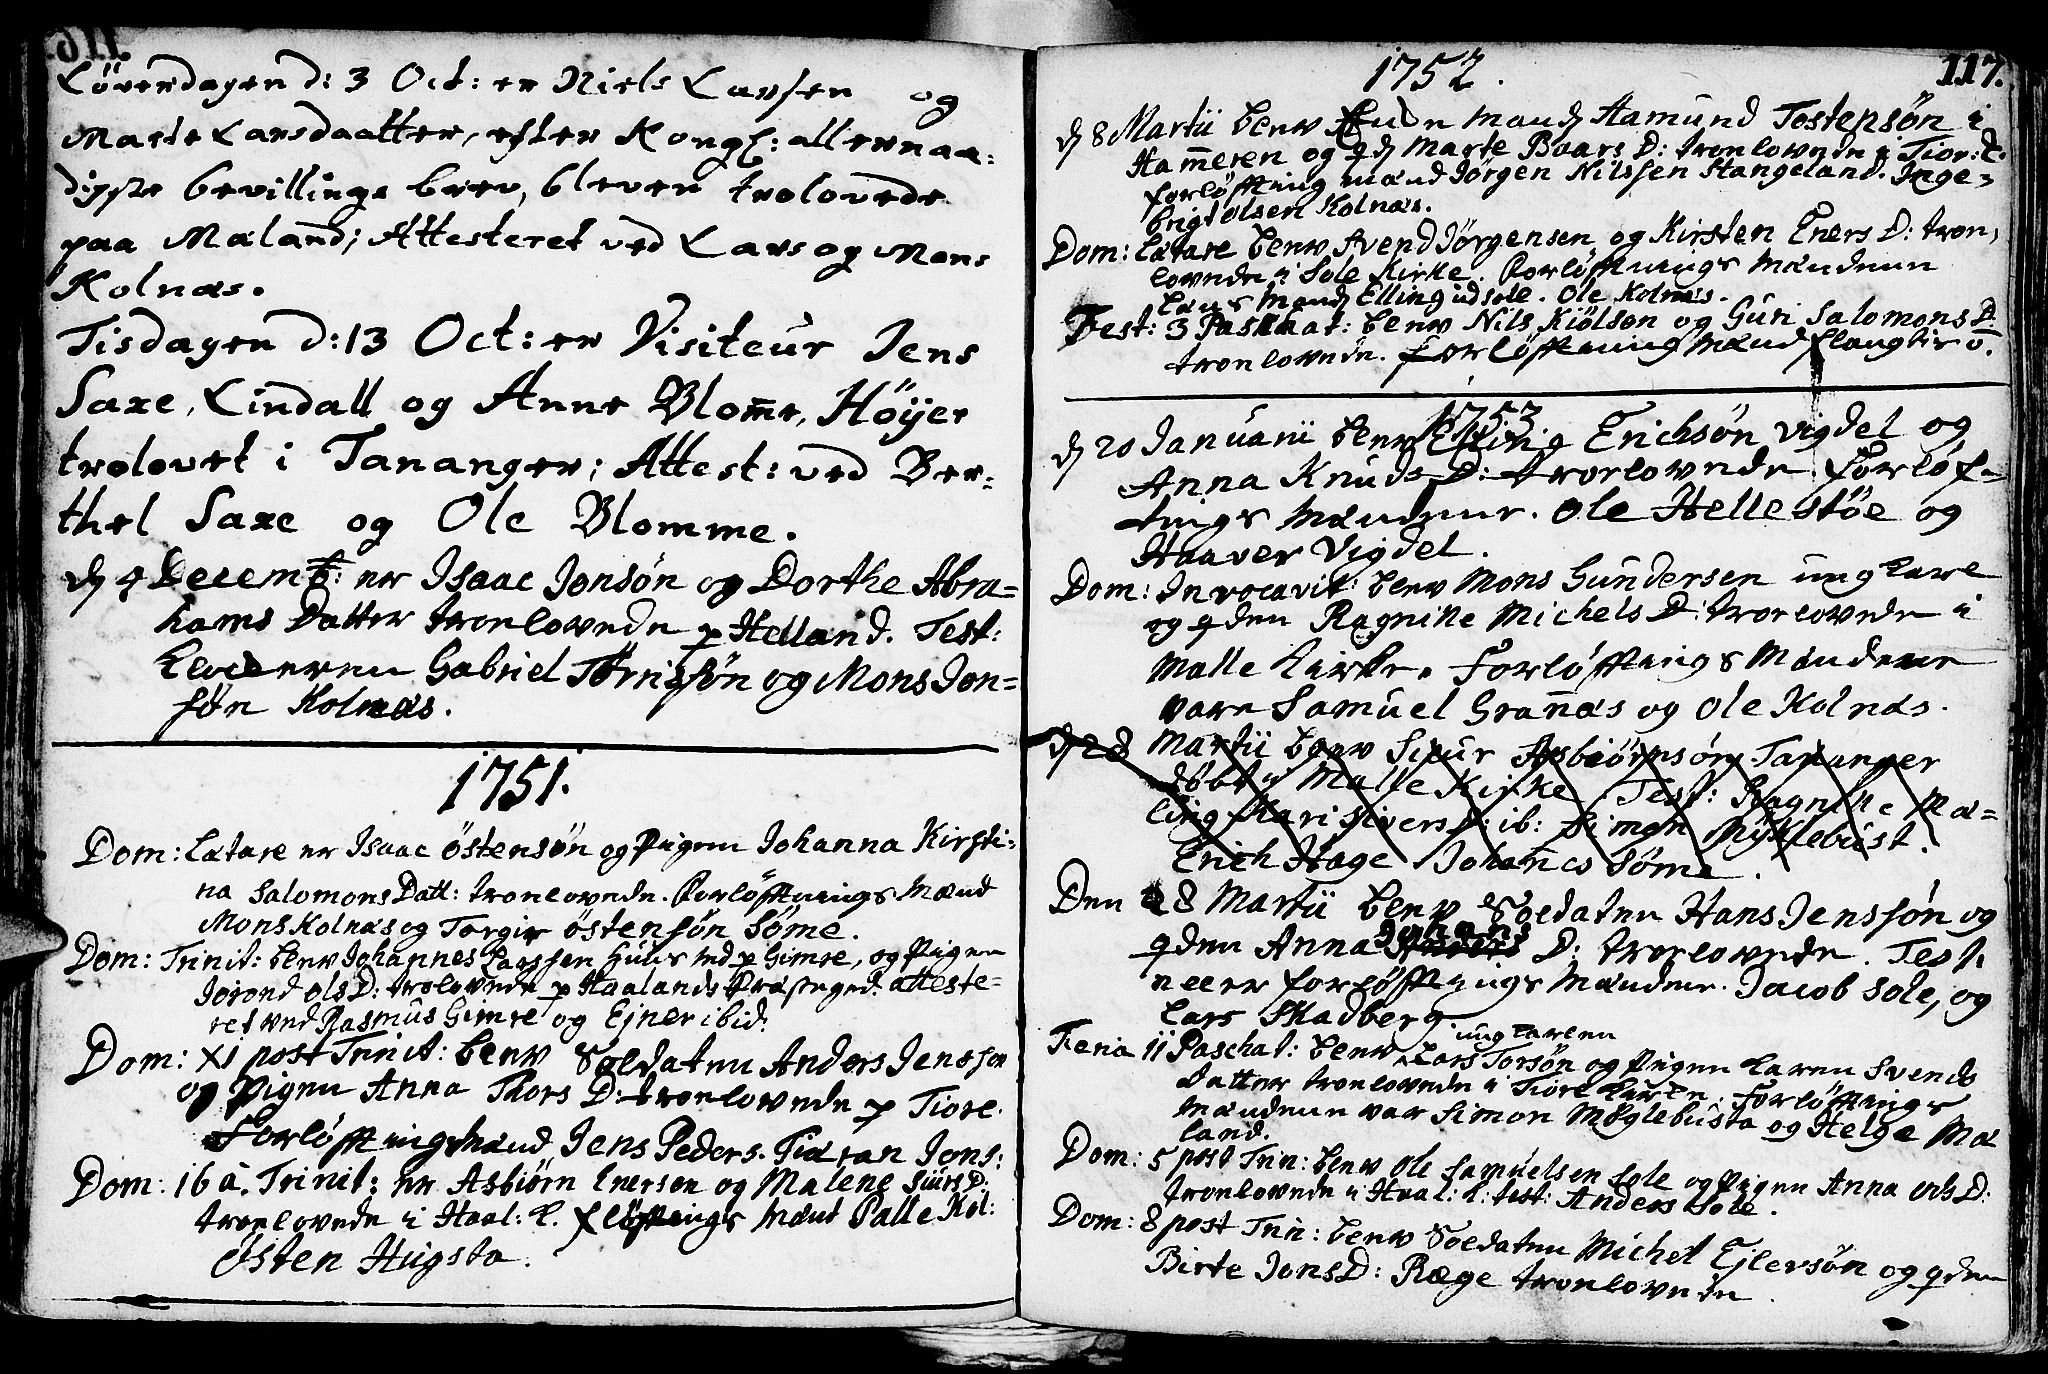 Löverdagen d: 3 Oct: er Niels Larsen og
Marte Larsdaatter, efter Kongl: allernaa:
digste bevillings brev, bleven trolovede
paa Maland; Attesteret ved Lars og Mons
Kolnæs.
Tisdagen d: 13 Oct: er Visiteur Jens
Saxe, Lindall og Anne Blome, Höyer
trolovet i Tananger; Attest: ved Ber=
thel Saxe og Ole Blomme.
dj 4 Decemb: er Isaac Jonsøn og Dorthe Abra=
hams Datter troelovede p Helland. Test:
Gabriel og Mons Jon=
søn Kolnæs.
1751.
Dom: Lætare er Isaac östensøn og Pigen Johanna Kirsti=
na Salomons Datt: troelovede. Forløfftnings Mænd
Mons Kolnæs og Torgir östensøn Söme.
Dom: Trinit: blev Johannes Larssen p Gimre, og Pigen
Joron ols D: trolovede p Haalands Præsteged. atteste=
ret ved Rasmus Gimre og Ejner ibid.
Dom: XI post Trinit: blev Soldaten Anders Jenssøn
og Pigen Anna Thors D: troelovede p Tiore.
Forløfftningsmænd Jens Peders. Jons:
Dom: 16 a. Trinit: er Asbiørn Enersen og Malene Siurs D:
troelovede i Haal: k. f løfftnings Mænd Palle Kol:
Østen Hugsta.
117.
1752.
dj 8 Martii blev Hamund Tostensøn i
Hameren og Marte Baars D: troelovede i Tior: k.
forløfftning mænd Jörgen Nilssen Stangeland. Inge=
brigt olsen Kolnæs.
Dom: Lætare blev Svend Jörgensen og Kirsten Eners D: troe,
lovede i Sole Kirke. Forløfftnings Mændene
Elling udsole. Ole Kolnæs.
Fest: 3 Paschat: blev Nils Kiölsen og Guri Salomons D.
troelovede. Forløfftning mænd
1753
dj 20 Januarii blev Elling Erichsøn Vigdel og
Anna Knuds D: troelovede. Forløf=
tnings Mændene. Ole Hellestöe og
Haaver Vigdel.
Dom: Invocavit: blev Mons Gundersen ung karl
og qden Ragnille Michels D: troelovede i
Malle Kirke. Forløfftnings Mændene
vare Samuel Granæs og Ole Kolnæs.
dj 28 Martii blev Siur Asbiörnsøn Tananger
döbt i Malle Kirke Test: Ragnille Mæ=
ling Kari Sivers ib: Simen Myklebust.
Erich Hage Johanes Söme.
Den 28 Martii blev Soldaten Hans Jenssøn og
qden Anna Johans D: troelovede. Test.
forløfftnings Mændene. Jacob Sole, og
Lars Skadberg
Feria 11 Paschat: blev ung karlen Lars Torsøn og Pigen Karen Svends
datter troelovede i Tiore Kirke. Forløfftnings
Mændene var Simon Möglebusta og Helge Mæ
land.
Dom: 5 post Trin: blev Ole Samuelsen Sole og Pigen Anna ols D:
troelovede i Haal: k: test: Anders Sole.
Dom: 8 post Trin: blev Soldaten Michel Ejlersøn og qden
Birte Jons D: Ræge troelovede.